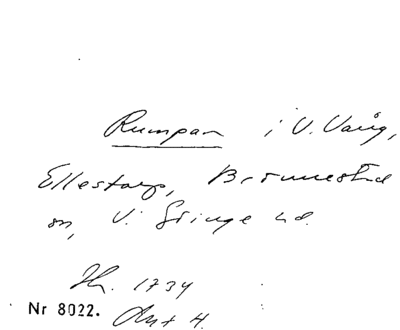 Rumpan i V. Vång,
Ellestorp, Brönnestad
sn, V. Göinge hd.
Hr. 1734
Nr 8022. Akt 4.